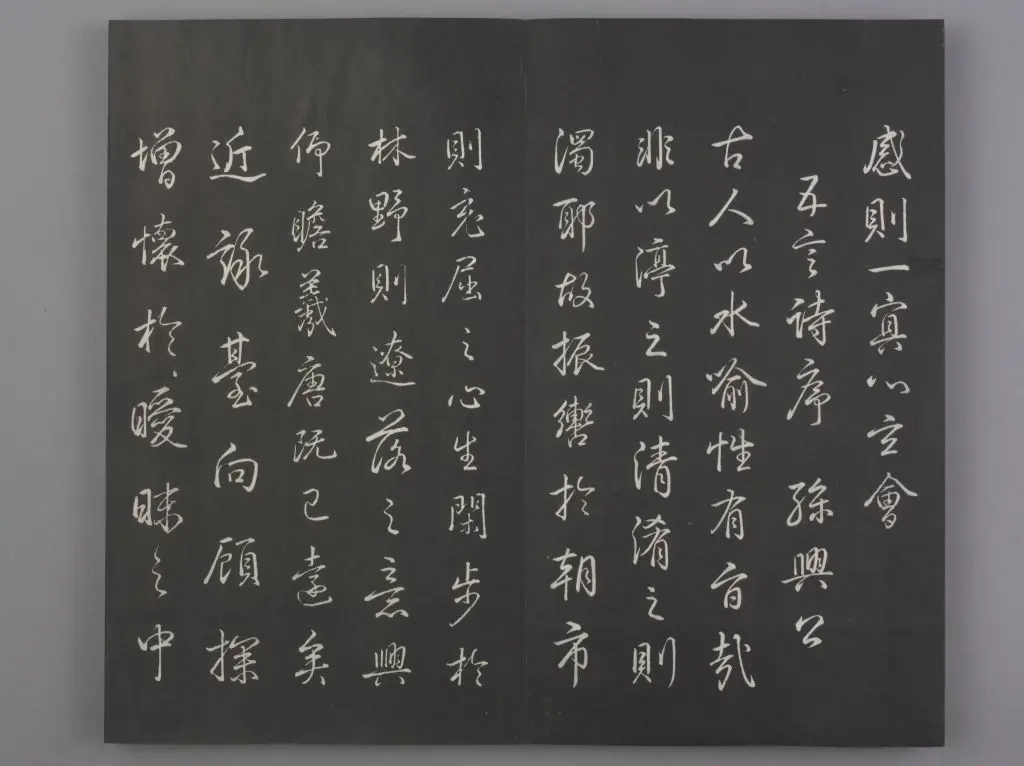 感則一冥然玄會
五言詩序 孫興公
古人以水喻性有旨哉
非以渟之則清淆之則
濁耶故振轡於朝市
則充屈之心生閑步於
林野則遼落之意興
仰瞻羲唐既已遠矣
近詠臺向顧探
增懷於曖昧之中